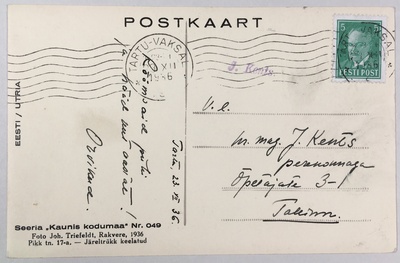 POSTKAART
TARTU-VAKSAL
XII
1936
EESTI POST
J. Kents
EESTI / UTRIA
Rõõmsaid pühi
ja häid uut aastat!
Tartu 23. XII 36.
V. e.
hr. mag. J. Kents
perekonnaga
Õpetajate 3-1
Tallinn.
Seeria „Kaunis kodumaa" Nr. 049
Foto Joh. Triefeldt, Rakvere, 1936
Pikk tn. 17-a. — Järeltrükk keelatud